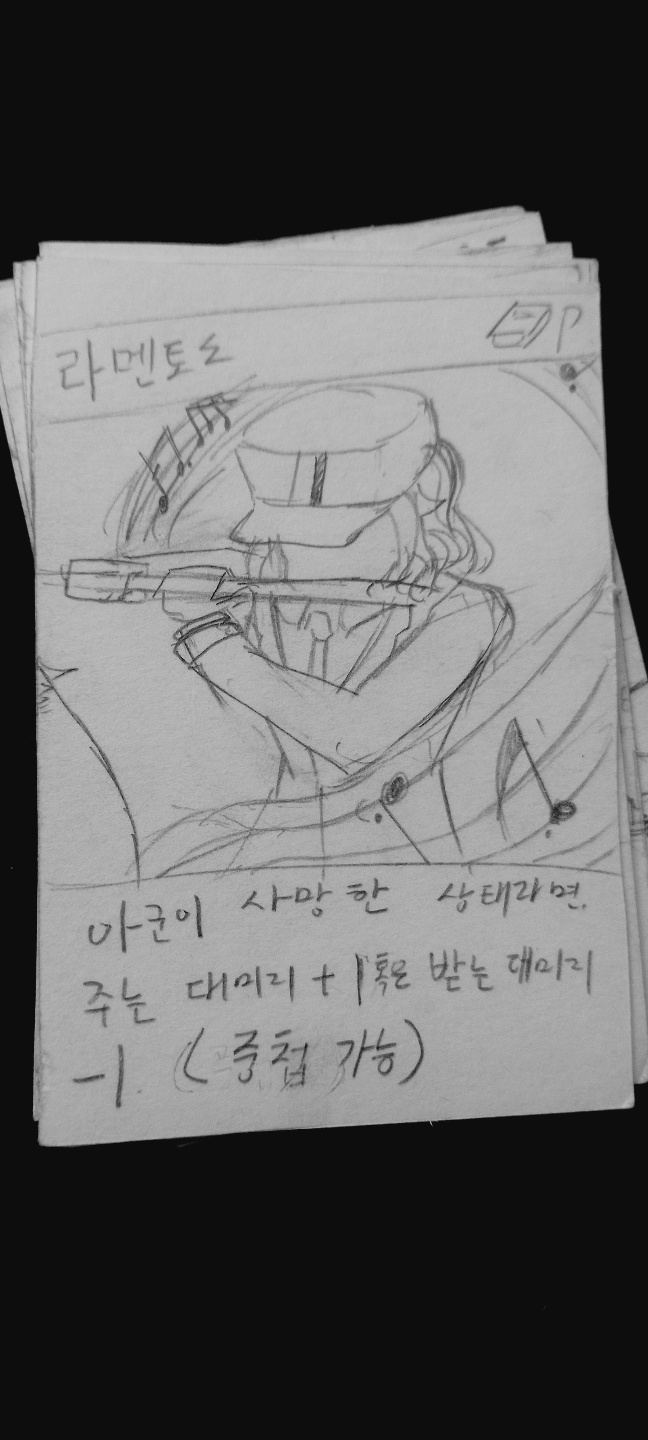 라멘토소
P
아군이 사망한 상태라면.
주는 대미리 + 1 혹은 받는 대미리
-1. (중첩 가능)